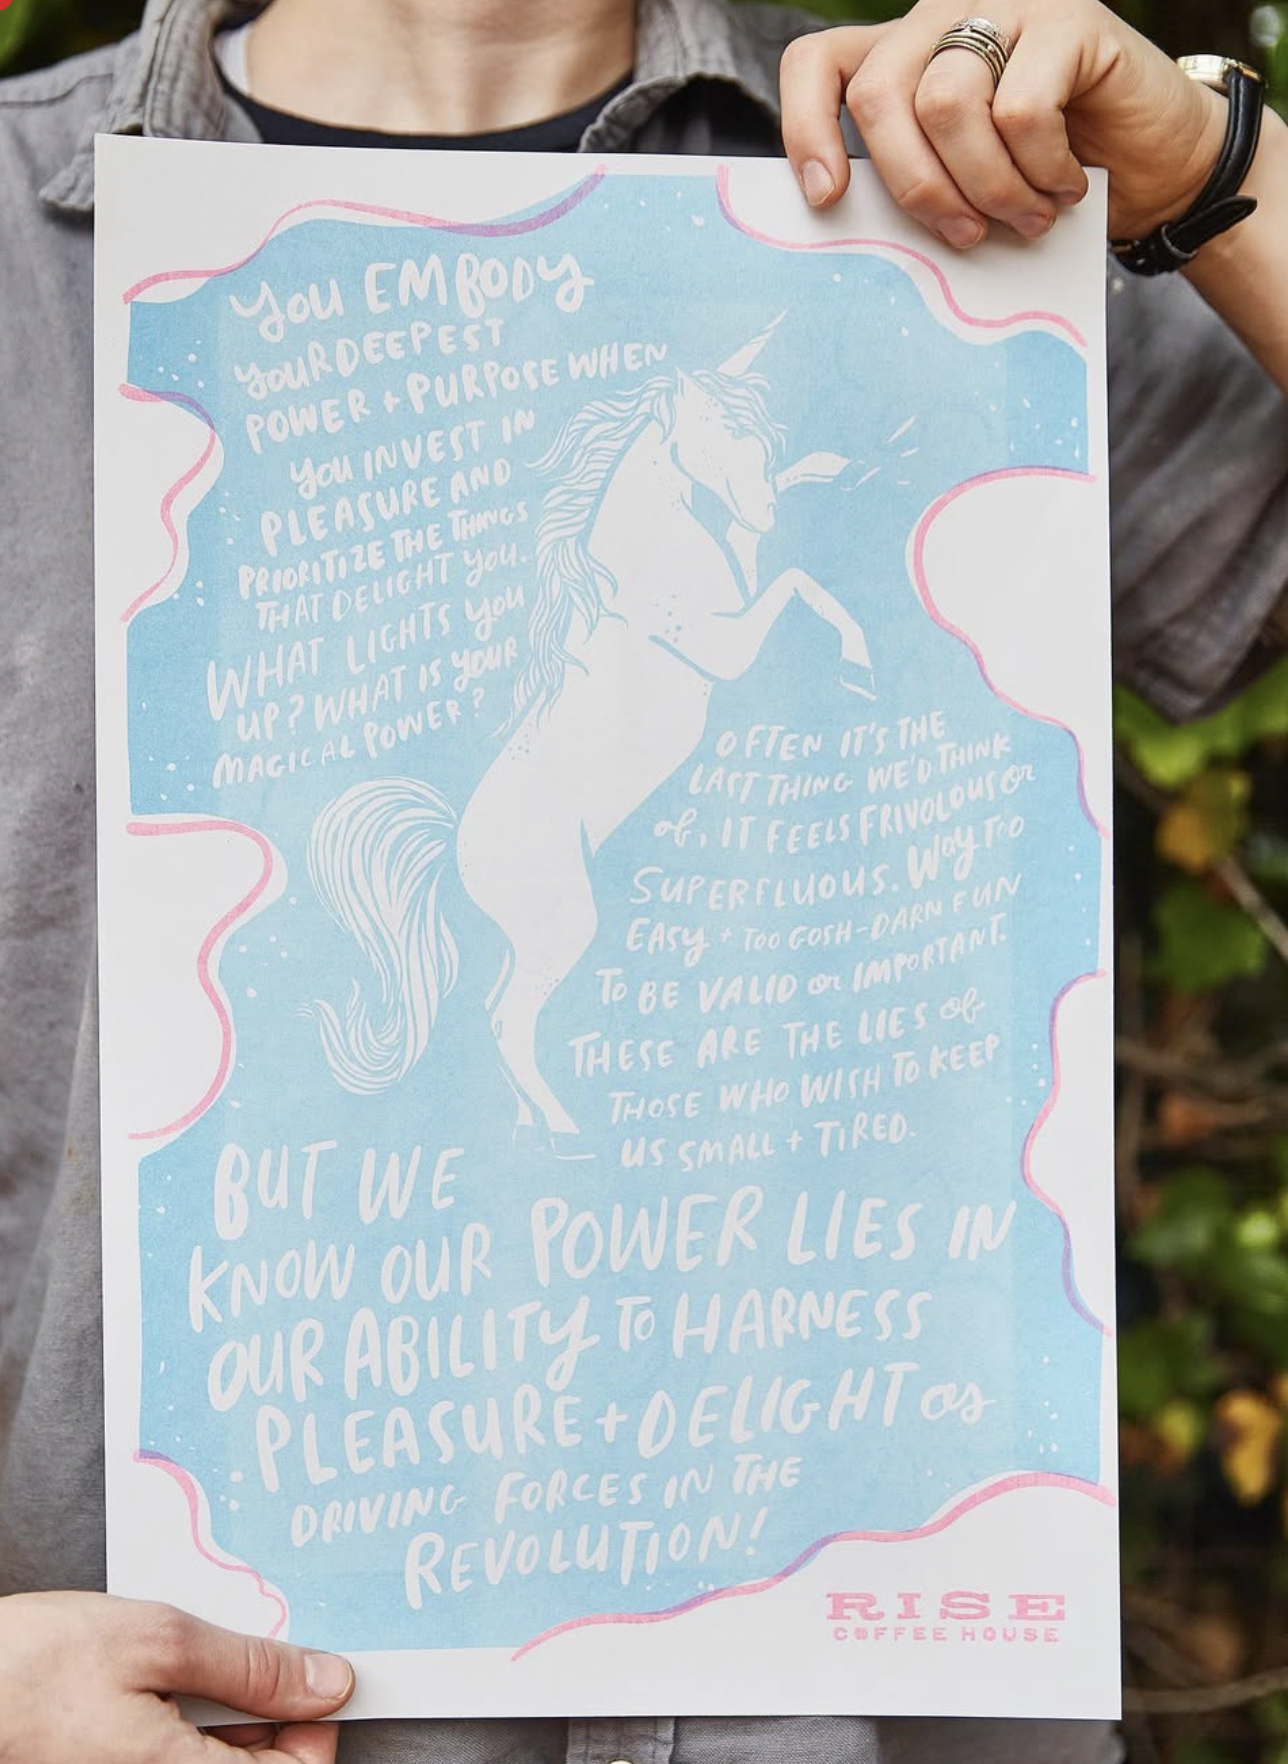 You EMBODY
YOUR DEEPEST
POWER + PURPOSE WHEN
you INVEST IN
PLEASURE AND
PRIORITIZE THE THINGS
THAT DELIGHT you.
WHAT LIGHTS you
UP? WHAT IS YOUR
MAGICAL POWER?
OFTEN IT'S THE
LAST THING WE'D THINK
of, IT FEELS FRIVOLOUS or
SUPERFLUOUS. Way Too
EASy + Too GOSH-DARN FUN
To BE VALID or IMPORTANT.
THESE ARE THE LIES of
THOSE WHO WISH To KEEP
US SMALL + TIRED.
BUT WE
KNOW OUR POWER LIES IN
OUR ABILITy To HARNESS
PLEASURE + DELIGHT as
DRIVING FORCES IN THE
REVOLUTION!
RISE
COFFEE HOUSE